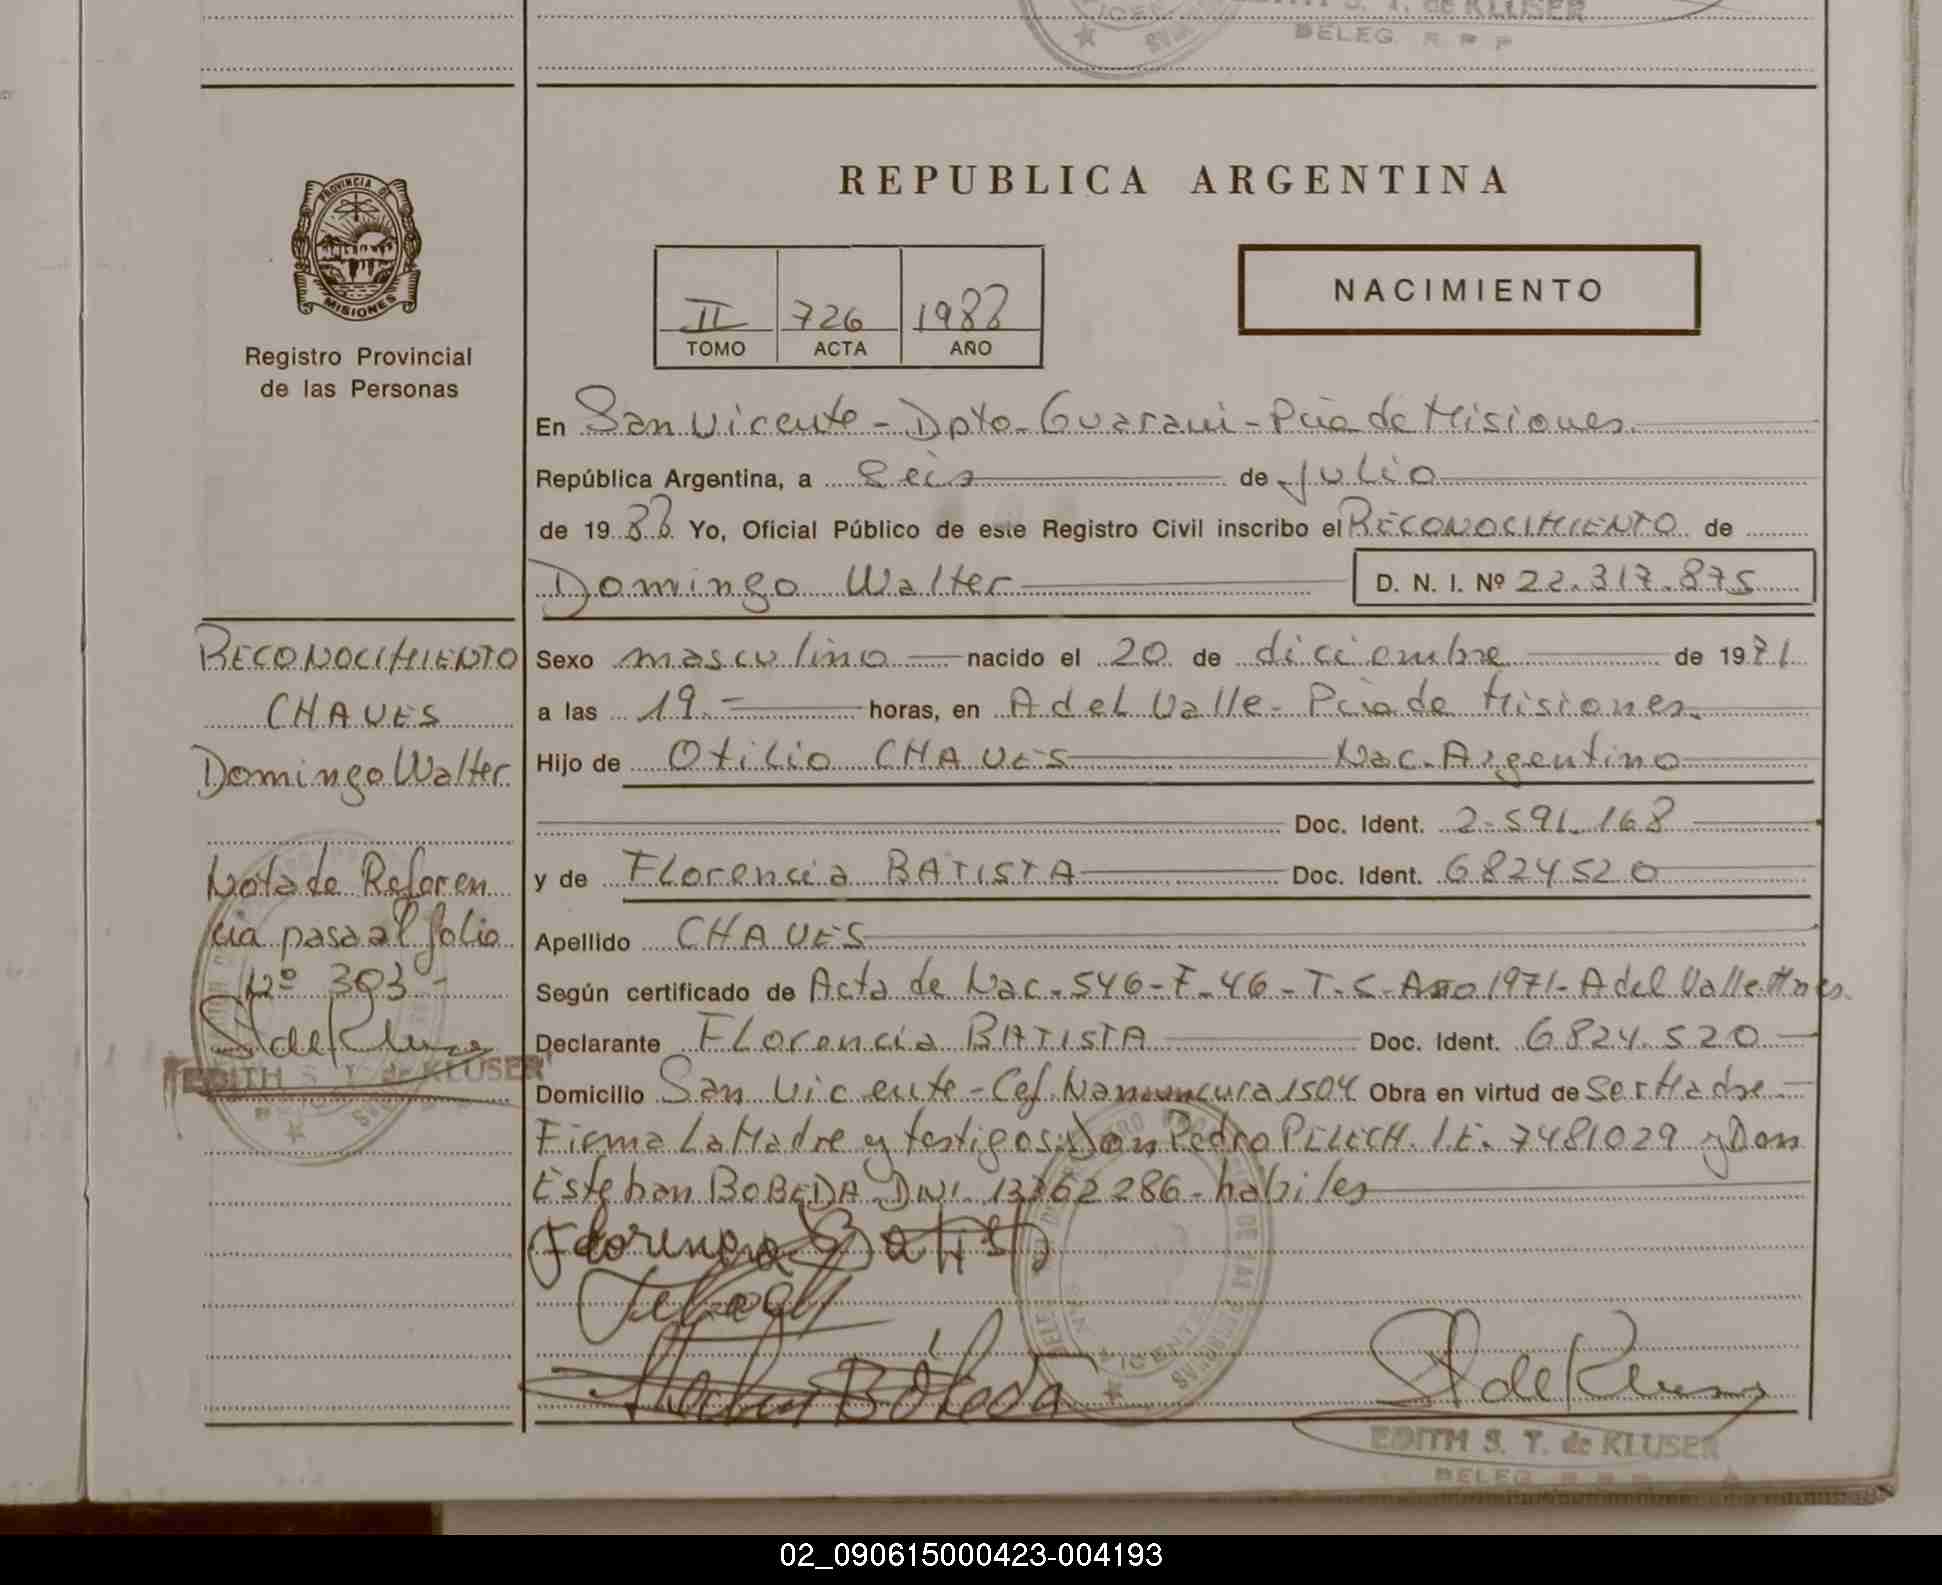 EDITH S. T. de KLUSER
DELEG. R. P. P.
REPUBLICA ARGENTINA
PROVINCIA DE
MISIONES
Registro Provincial
de las Personas
II 726 1988
TOMO ACTA AÑO
NACIMIENTO
En San Vicente - Dpto. Guarani - Pcia de Misiones.
República Argentina, a seis de Julio
de 19 88 Yo, Oficial Público de este Registro Civil inscribo el RECONOCIMIENTO de
Domingo Walter D. N. I. Nº 22.317.875
RECONOCIMIENTO
CHAVES
Domingo Walter
Nota de Referen
cia pasa al folio
Nº 303 -
EDITH S. T. de KLUSER
Sexo masculino nacido el 20 de diciembre de 1971
a las 19.- horas, en A del Valle - Pcia de Misiones.
Hijo de Otilio CHAVES Nac. Argentino
Doc. Ident. 2.591.168
y de Florencia BATISTA Doc. Ident. 6824520
Apellido CHAVES
Según certificado de Acta de Nac. 546 - F. 46 - T. - Año 1971 - A del Valle Mnes.
Declarante Florencia BATISTA Doc. Ident. 6.824.520
Domicilio San Vicente - Cef. Namuncura 1504 Obra en virtud de ser Madre.
Firma La Madre y testigos: Don Pedro PELECH. I.E. 7481029 y Don
Esteban BOBEDA DNI. 13762286 - habiles
Florencia Batista
Esteban Bobeda
EDITH S. T. de KLUSER
DELEG. R. P. P.
02_090615000423-004193